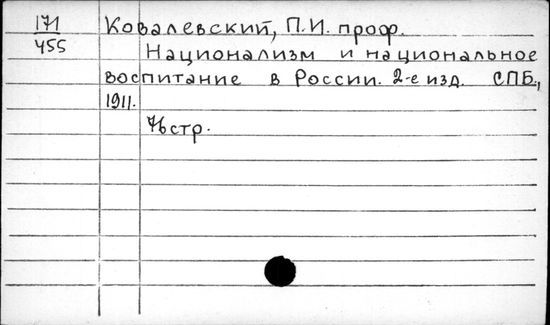 171 Ковалевский, П.И. проф.
455 Национализм и национальное
воспитание в России. 2-е изд. СПБ.,
1911.
76 стр.